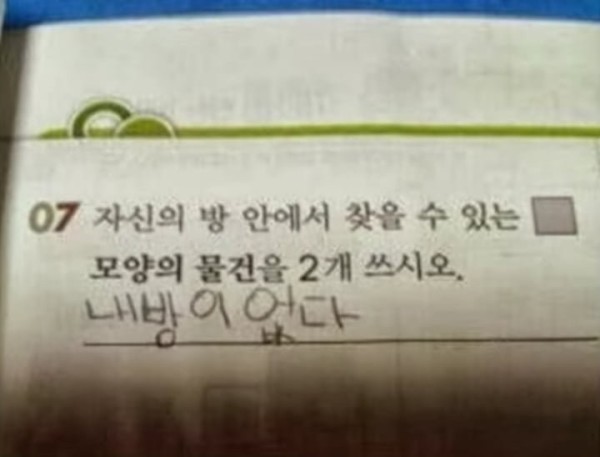 07 자신의 방 안에서 찾을 수 있는
모양의 물건을 2개 쓰시오.
내방이 없다